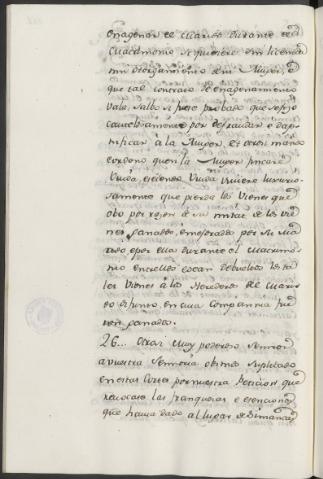 enagenar el Marido durante el
Matrimonio si quisiere sin licencia
nin otorgamiento de su Muger, e
que tal contrato de enagenamiento
vala, salbo si fuere probado que se fizo
cautelosamente por defraudar e dap-
nificar à la Muger. Et otrosi mando
e ordeno que si la Muger fincare
Viuda, e seiendo Viuda viviere luxurio-
samente que pierda los Vienes que
obo por rason de su mitad de los Vie-
nes ganados, e mejorados por su Ma-
rido, e por ella durante el Matrimo-
nio entrellos e sean debueltos los ta-
les Vienes à los Herederos del Mari-
do defunto en cuia compañia fue-
ron ganados.
26... Otrosi Muy poderoso Señor
a vuestra Señoria obimos suplicado
en estas Cortes por nuestra Peticion que
revocase las franquezas e esenciones
que havia dado al lugar de Simancas